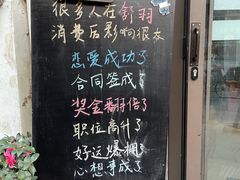 很多人在舒羽
消费后影响很大
恋爱成功了
合同签成了
奖金翻倍了
职位高升了
好运爆棚了
心想事成了